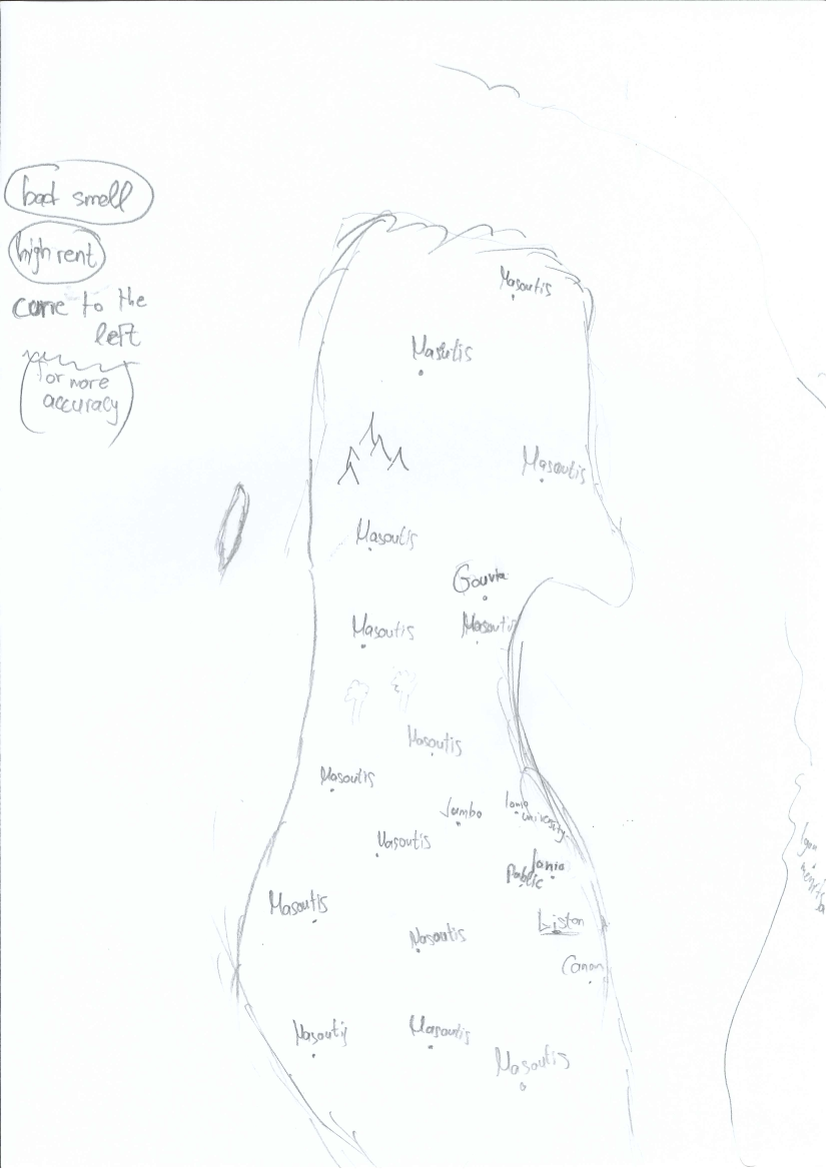 bad smell
high rent
come to the
left
(for more
accuracy)
Masoutis
Masutis
Masoutis
Masoutis
Gouvia
Masoutis
Masoutis
Masoutis
Masoutis
Jumbo
Ionio
university
Masoutis
Ionio
Public
Masoutis
Liston
Masoutis
Canon
Masoutis
Masoutis
Masoutis